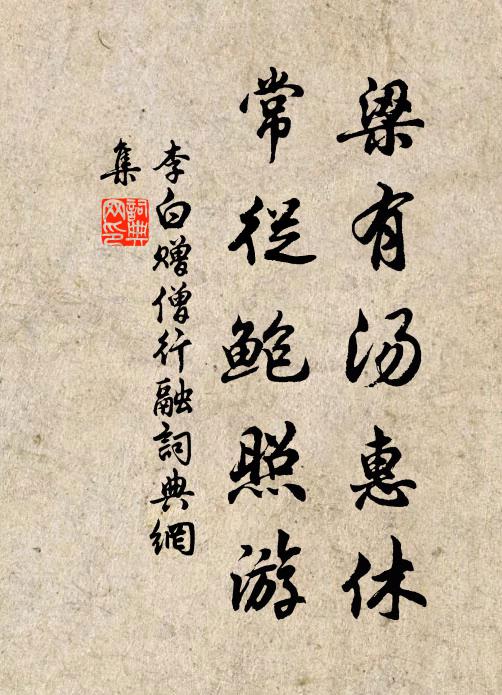 梁有汤惠休
常從鮑照游
李白赠僧行融詞典網
集
詞典
网印